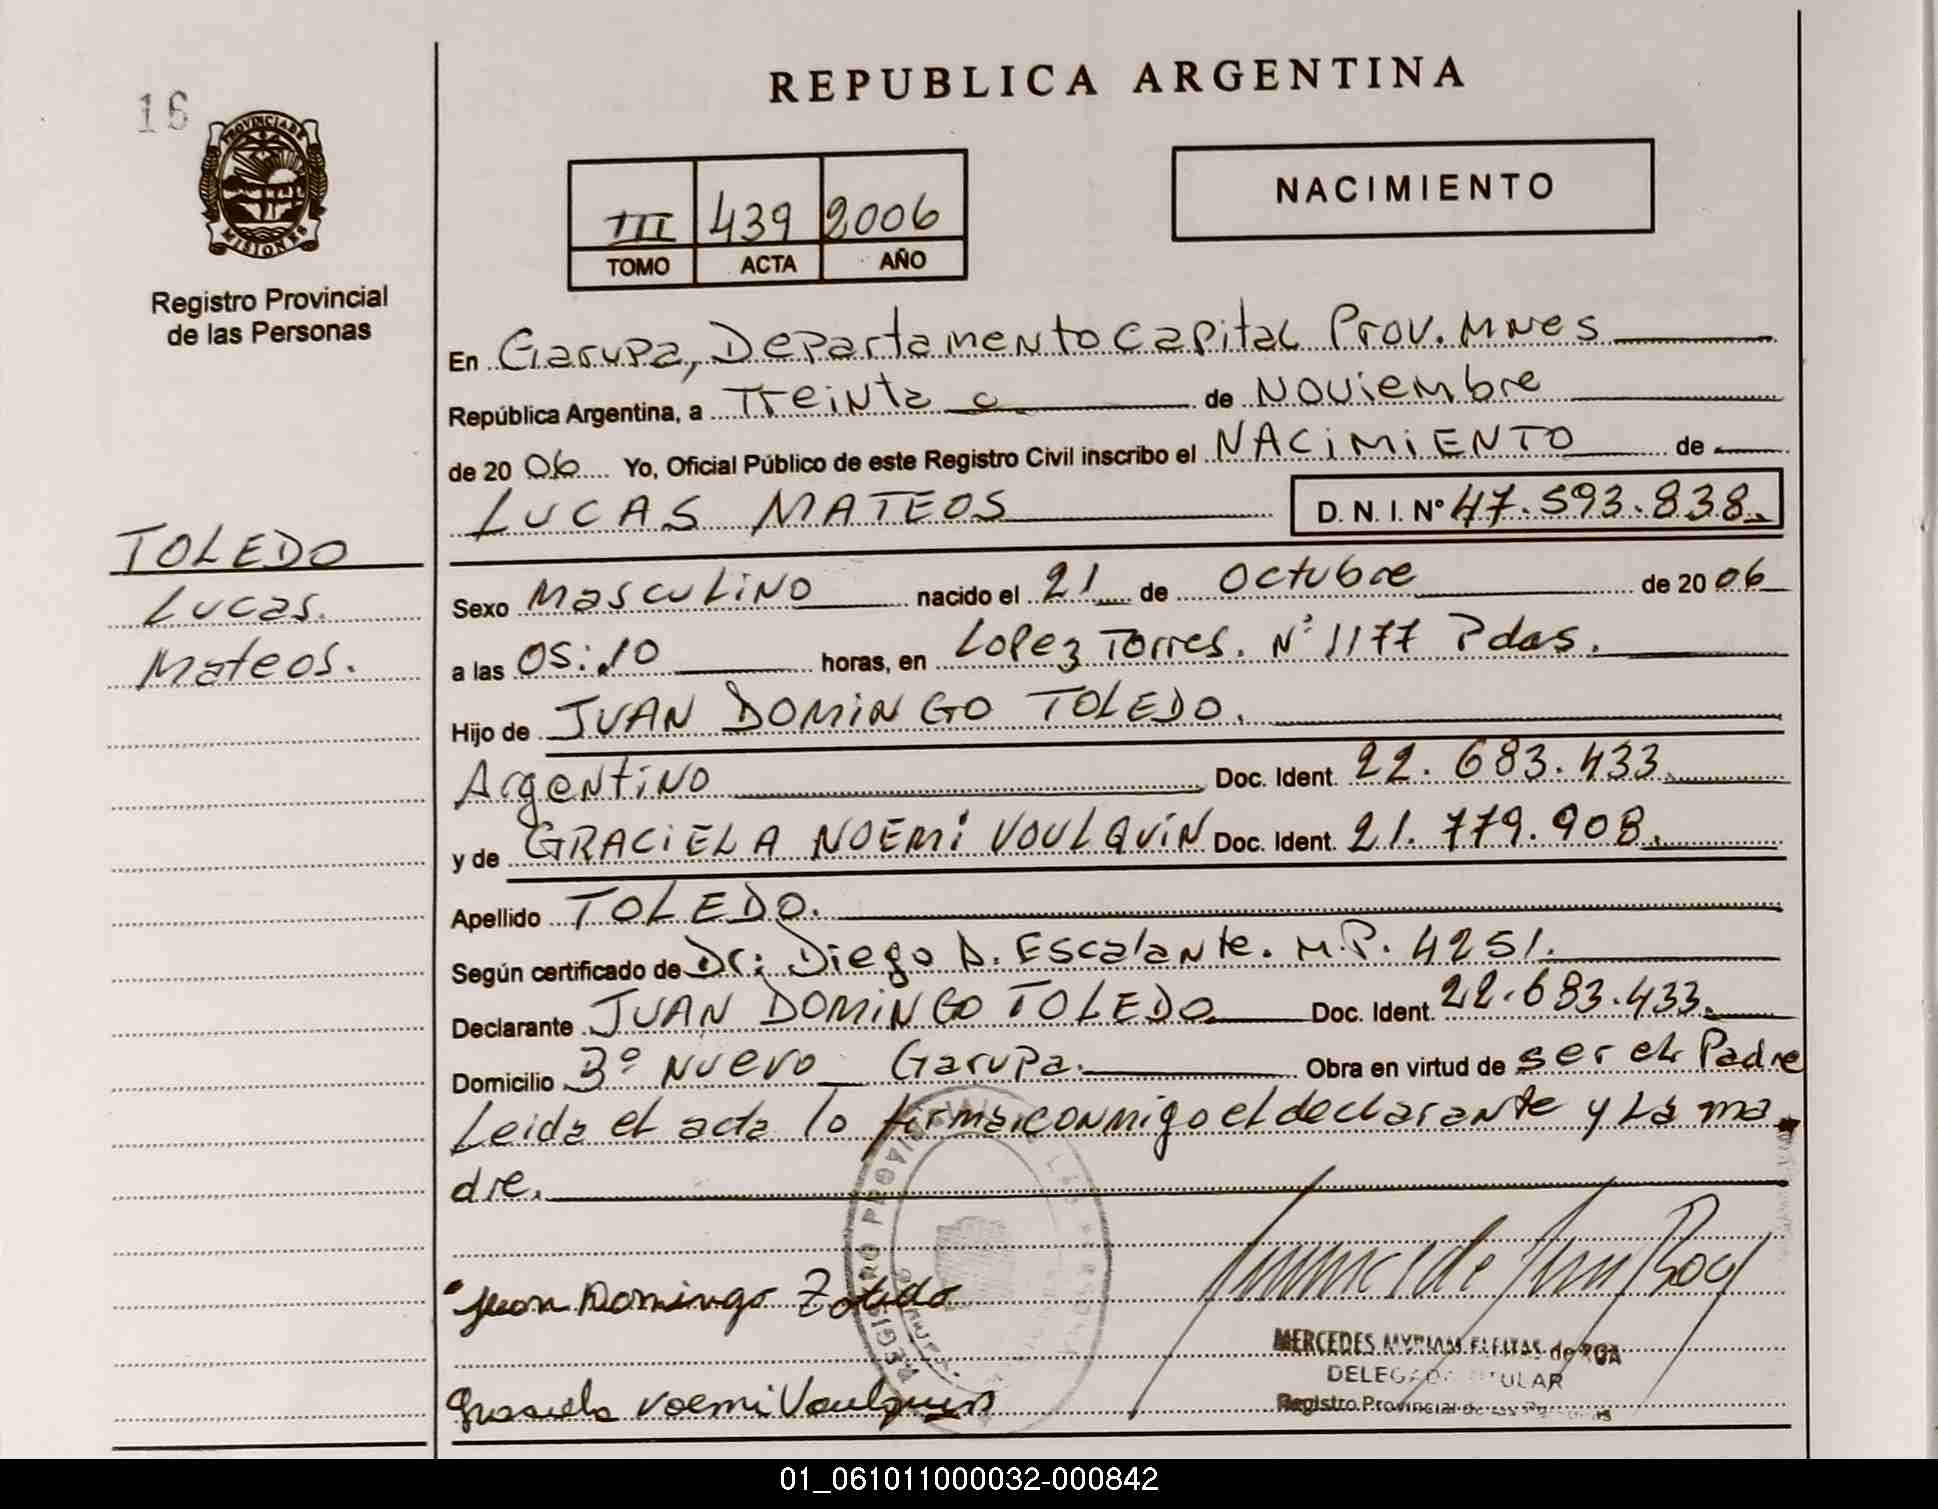 REPUBLICA ARGENTINA
16
PROVINCIA DE
MISIONES
Registro Provincial
de las Personas
III 439 2006
TOMO ACTA AÑO
NACIMIENTO
En Garupa, Departamento Capital Prov. Mnes
República Argentina, a Treinta de Noviembre
de 20 06 Yo, Oficial Público de este Registro Civil inscribo el NACIMIENTO de
LUCAS MATEOS D. N. I. Nº 47.593.838.
TOLEDO
Lucas.
Mateos.
Sexo Masculino nacido el 21 de Octubre de 20 06
a las 05:10 horas, en Lopez Torres. Nº 1177 Pdas.
Hijo de JUAN DOMINGO TOLEDO.
Argentino Doc. Ident. 22.683.433.
y de GRACIELA NOEMI VOULQUIN Doc. Ident. 21.779.908.
Apellido TOLEDO.
Según certificado de Dr: Diego A. Escalante. M.P. 4251.
Declarante JUAN DOMINGO TOLEDO Doc. Ident. 22.683.433.
Domicilio Bº Nuevo Garupa. Obra en virtud de ser el Padre
Leida el acta lo firma conmigo el declarante y la ma
dre.
Juan Domingo Toledo
MERCEDES MYRIAM FLEITAS de ROA
DELEGADA TITULAR
Registro Provincial de las Personas
Graciela Noemi Voulquin
01_061011000032-000842